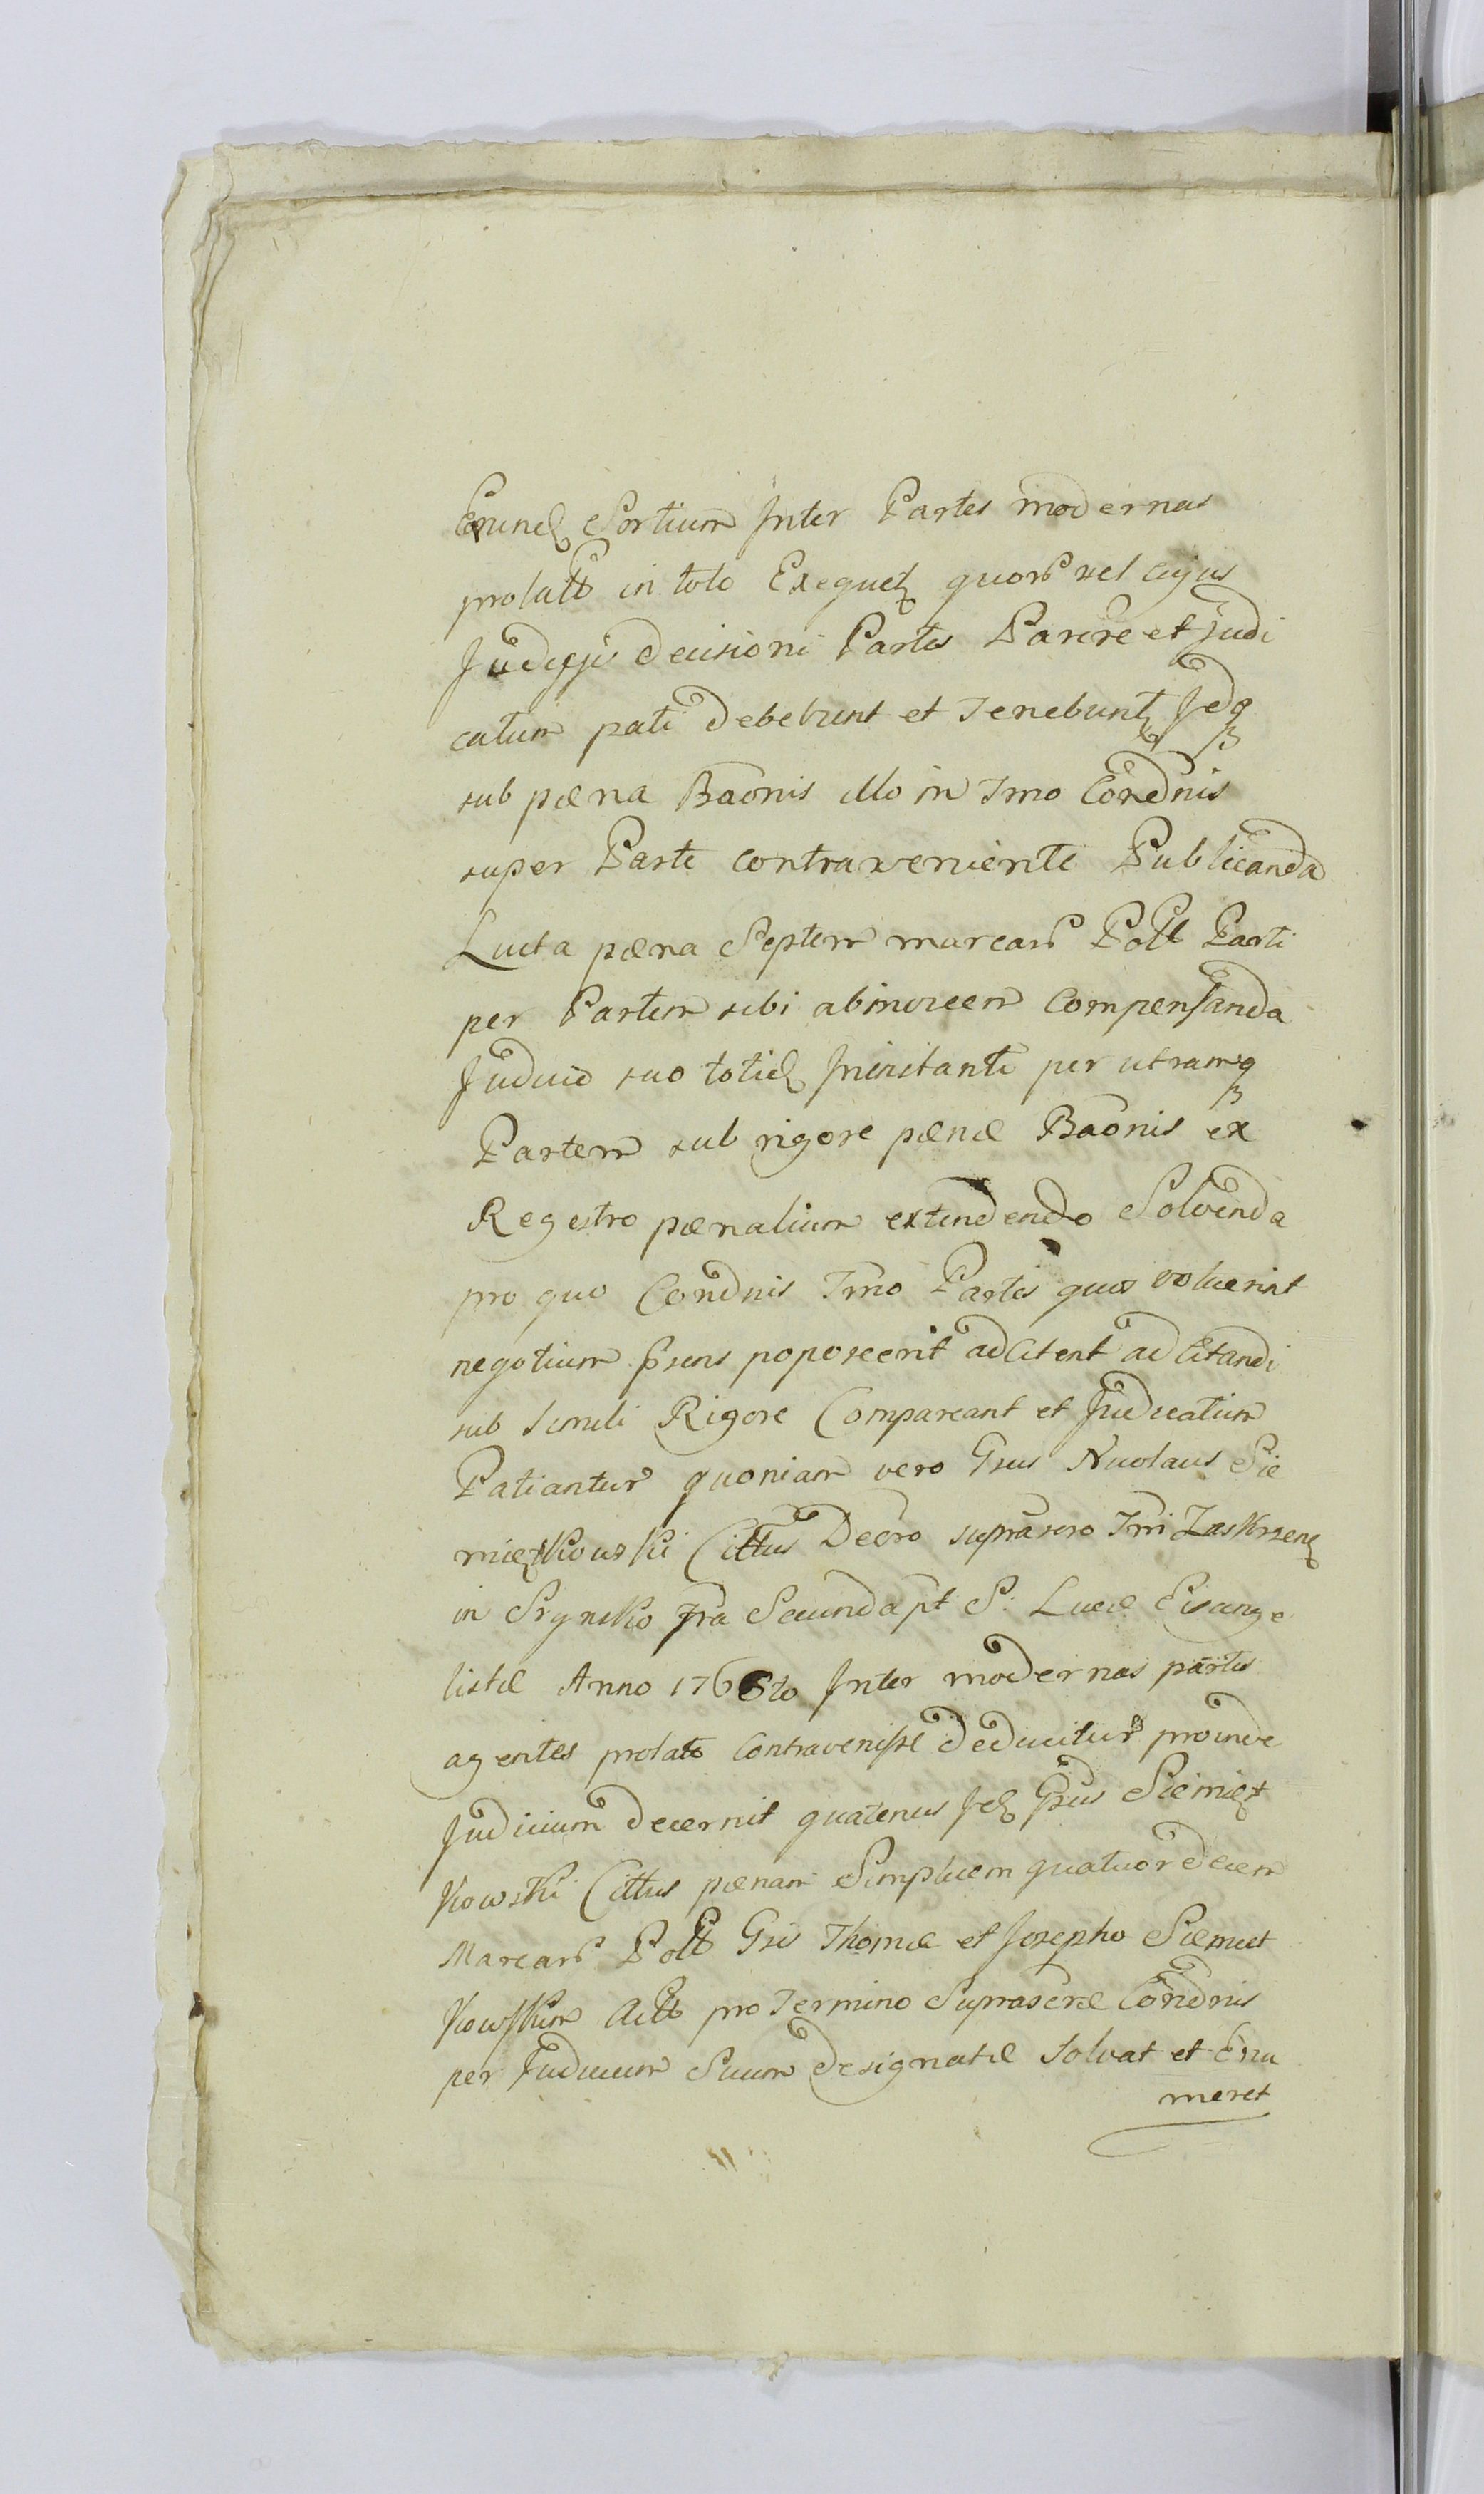 Sortium Inter Partes modernas
prolatt in toto Exequet quor vel cujus
Judicys decisioni Partes Parere et Judi
catum pati debebunt et Tenebunt Idq
sub pæna Baonis illo in Tmo Condnis
super Parte contraveniente Publicanda
Lucta pæna Septem marcar Poll Parti
per Partem sibi abinvicem Compensanda
Judicio suo toties Inivitante per utramq
Partem sub rigore pænæ Baonis ex
Regestro pænalium extendendo Solvenda
pro quo Condnis Tmo Partes quos voluerint
negotium psens poposcerit adCitent adCitandi
sub Simili Rigore Compareant et Judicatum
Patiantur quoniam vero Gsus Nicolaus Sie
mietkowski Cittus Decro suprascro Tmi Zaskrzene
in Srynsko fra Secunda pt S. Lucæ Evange
listæ Anno 1766to Inter modernas partes
agentes prolato Contravenisse deducitur proinde
Judicium decernit quatenus Gsus Siemięt
kowski Cittus pænam Simplicem quatuordecem
Marcar Poll Gsis Thomæ et Josepho Siemięt
kowskim Actt pro Termino Suprascræ Condnis
per Judicium Suum designatæ Solvat et Enu
meret